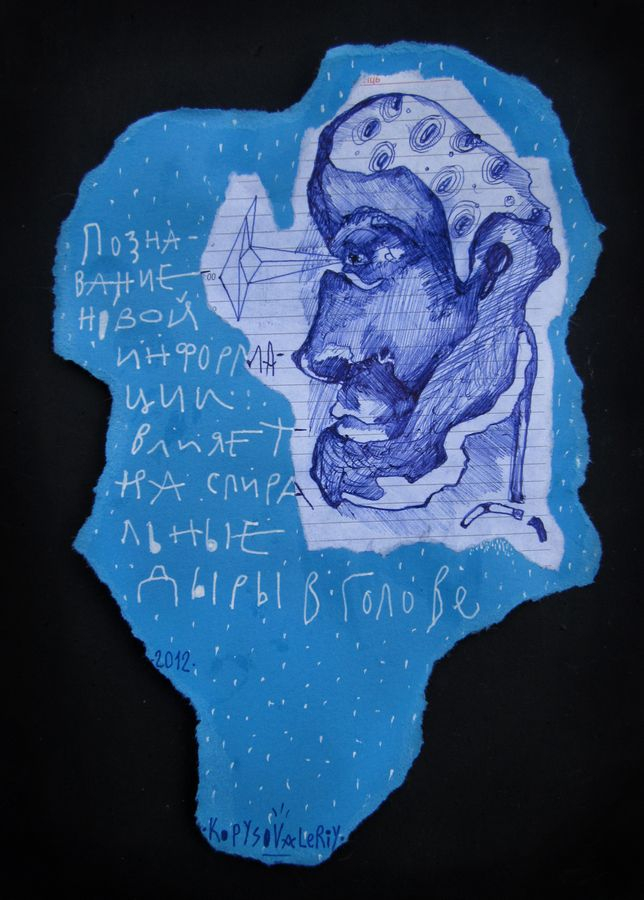 Позна-
вание
новой
информа-
ции:
влияет
на спира
льные
дыры в голове
·2012·
·KOPYSOVALeRiY·